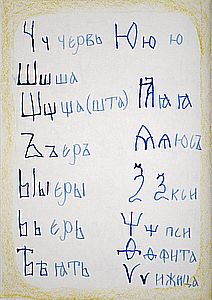 Ч ч червь
Ш ш ша
Щ щ ща(шта)
Ъ ъ еръ
Ы ы еры
Ь ь ерь
Ѣ ѣ ять
Ю ю ю
Ꙗ ꙗ ꙗ
Ѧ ѧ юсъ
Ѯ ѯ кси
Ѱ ѱ пси
Ѳ ѳ фита
Ѵ ѵ ижица